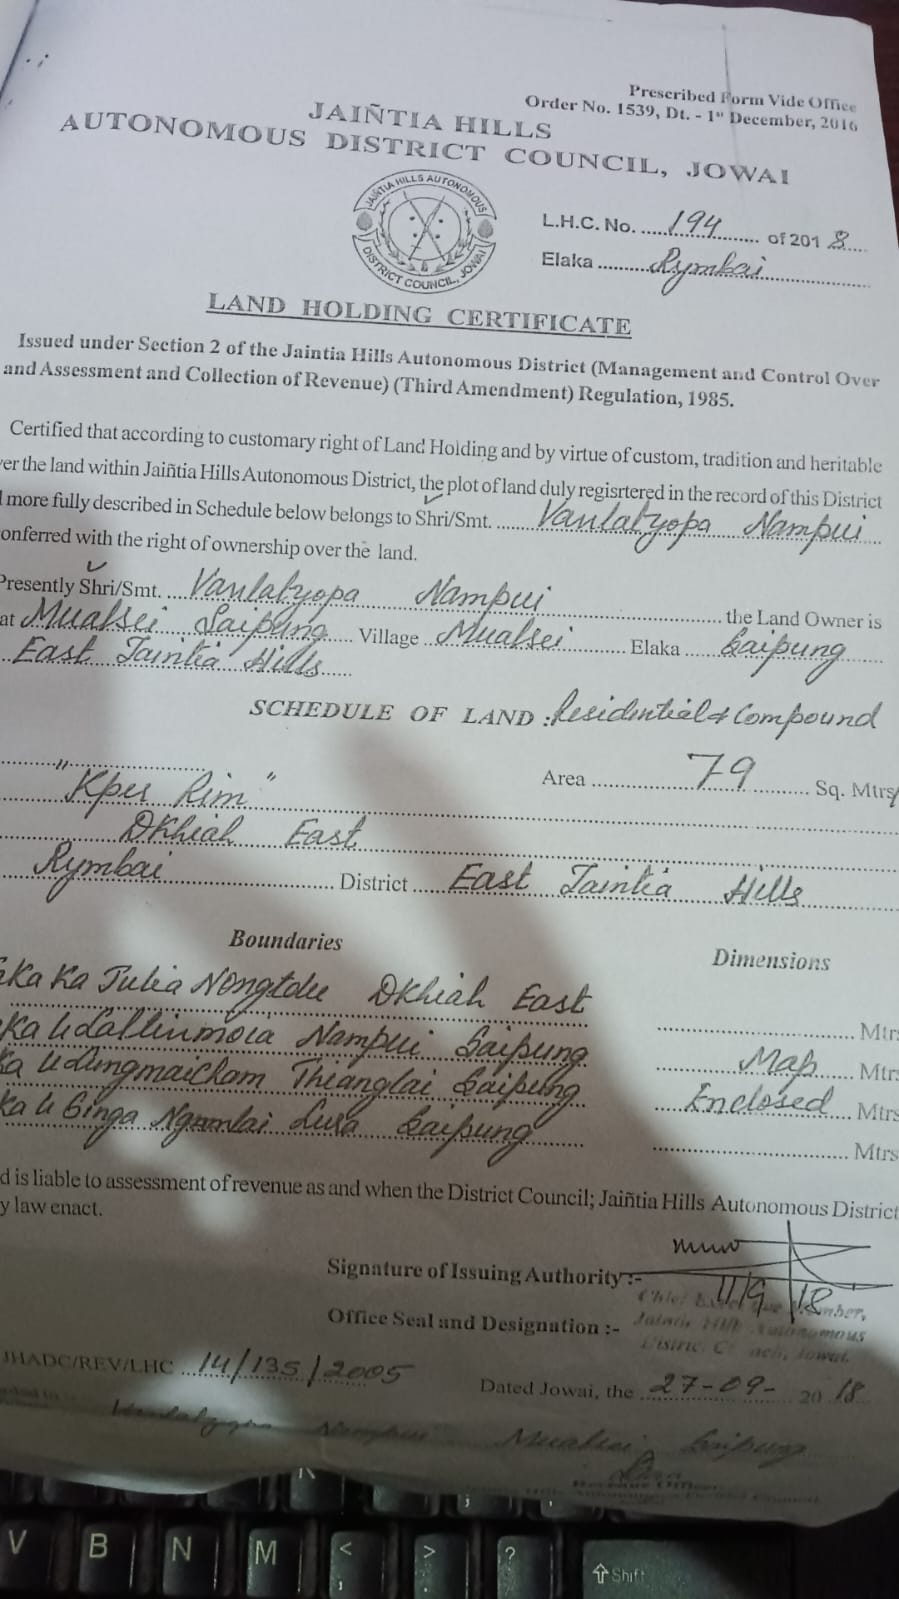 Prescribed Form Vide Office
Order No. 1539, Dt. - 1st December, 2016
JAIÑTIA HILLS
AUTONOMOUS DISTRICT COUNCIL, JOWAI
JAIÑTIA HILLS AUTONOMOUS
DISTRICT COUNCIL, JOWAI
L.H.C. No. 194 of 2018
Elaka Rymbai
LAND HOLDING CERTIFICATE
Issued under Section 2 of the Jaintia Hills Autonomous District (Management and Control Over
and Assessment and Collection of Revenue) (Third Amendment) Regulation, 1985.
Certified that according to customary right of Land Holding and by virtue of custom, tradition and heritable
er the land within Jaiñtia Hills Autonomous District, the plot of land duly regisrtered in the record of this District
more fully described in Schedule below belongs to Shri/Smt. Vanlalyopa Nampui
onferred with the right of ownership over the land.
Presently Shri/Smt. Vanlalyopa Nampui the Land Owner is
at Mualsei Saipung Village Mualsei Elaka Saipung
East Jaintia Hills
SCHEDULE OF LAND : Residential & Compound
Area 79 Sq. Mtrs
"Kper Rim"
Dkhiah East
Rymbai District East Jaintia Hills
Boundaries Dimensions
Ka Ka Julia Nongtdu Dkhiah East Mtr
Nampui Saipung Map Mtr
Thianglai Saipung Enclosed Mtrs
Saipung Mtrs
d is liable to assessment of revenue as and when the District Council; Jaiñtia Hills Autonomous District
y law enact.
Signature of Issuing Authority :-
11/9/18
Office Seal and Designation :-
Member,
Autonomous
Jowai.
JHADC/REV/LHC 14/135/2005
Dated Jowai, the 27-09- 2018
Vanlalyopa Nampui Mualsei Saipung
V B N M < , > . ? Shift